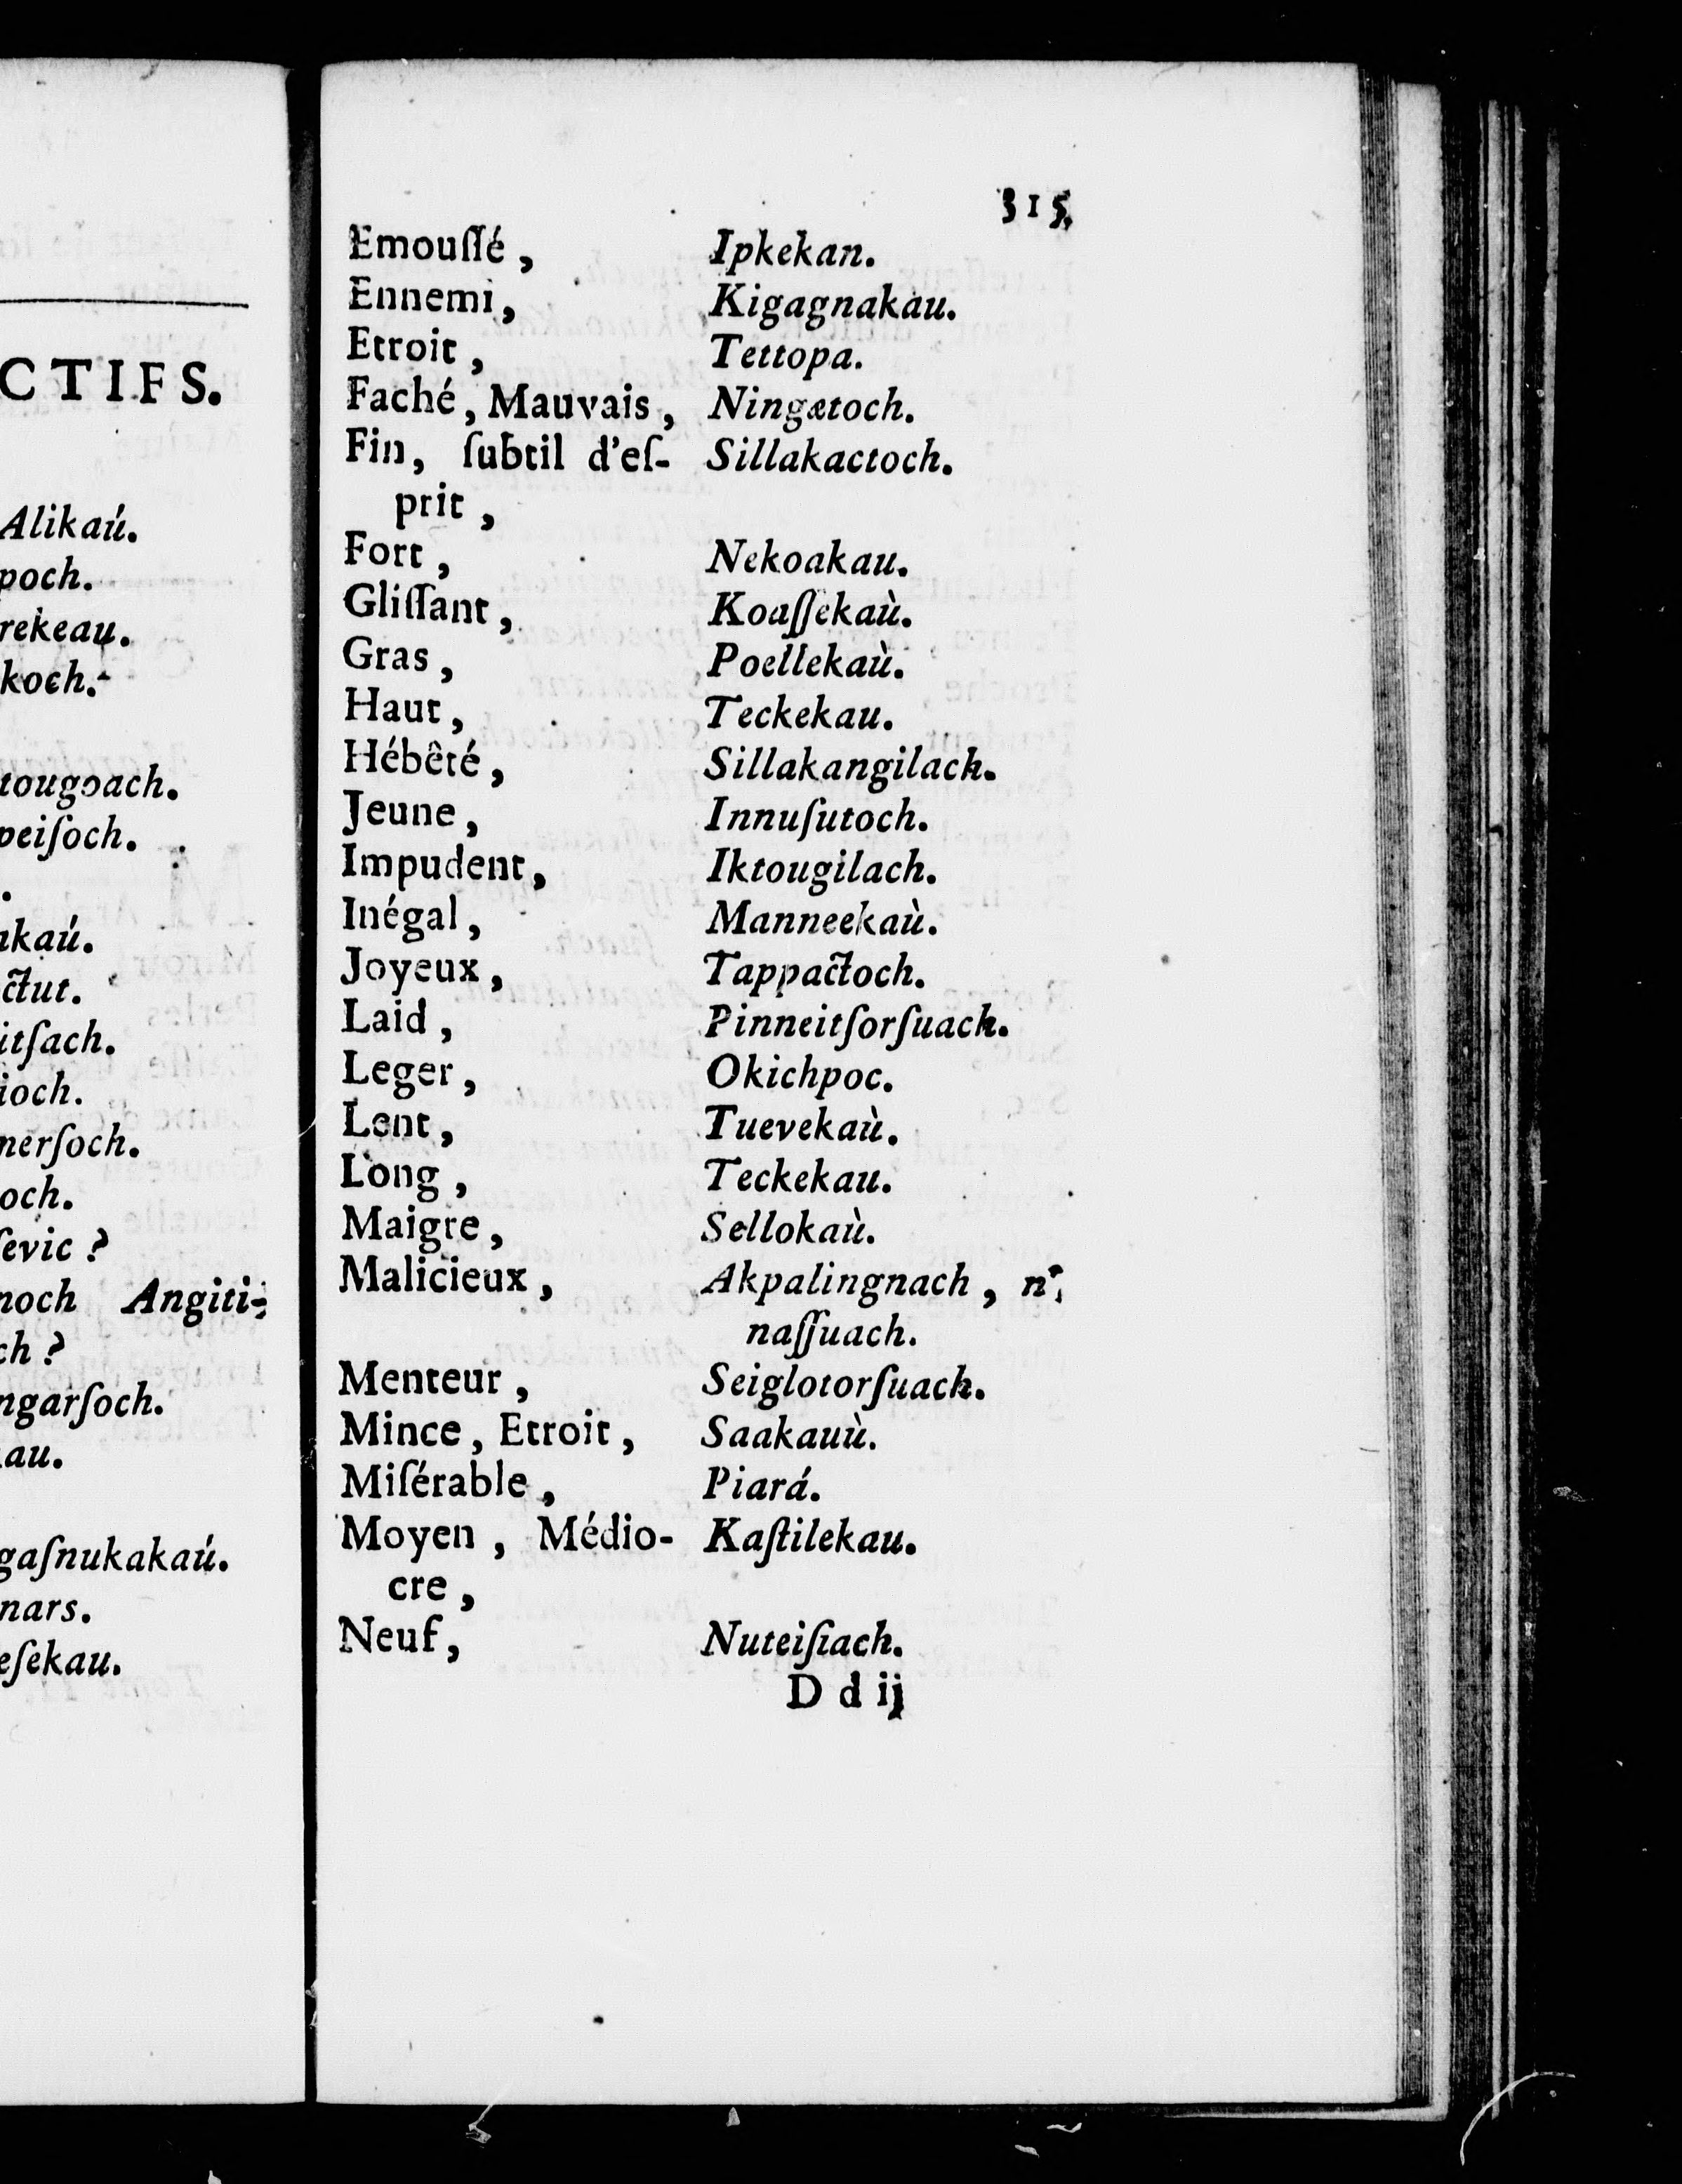 CTIFS.
Alikaú.
poch.
rekeau.
koch.
tougoach.
peiſoch.
ikaú.
ctut.
itſach.
ioch.
nerſoch.
och.
ſevic ?
noch Angiti-
ch ?
ngarſoch.
au.
gaſnukakaú.
nars.
eſekau.
315
Emouſſé, Ipkekan.
Ennemi, Kigagnakau.
Etroit, Tettopa.
Faché, Mauvais, Ningætoch.
Fin, ſubtil d'eſ- Sillakactoch.
prit,
Fort, Nekoakau.
Gliſſant, Koaſſekaù.
Gras, Poellekaù.
Haut, Teckekau.
Hébêté, Sillakangilach.
Jeune, Innuſutoch.
Impudent, Iktougilach.
Inégal, Manneekaù.
Joyeux, Tappactoch.
Laid, Pinneitſorſuach.
Leger, Okichpoc.
Lent, Tuevekaù.
Long, Teckekau.
Maigre, Sellokaù.
Malicieux, Akpalingnach,
naſſuach.
Menteur, Seiglotorſuach.
Mince, Etroit, Saakauù.
Miſérable, Piará.
Moyen, Médio- Kaſtilekau.
cre,
Neuf, Nuteiſiach.
D d ij